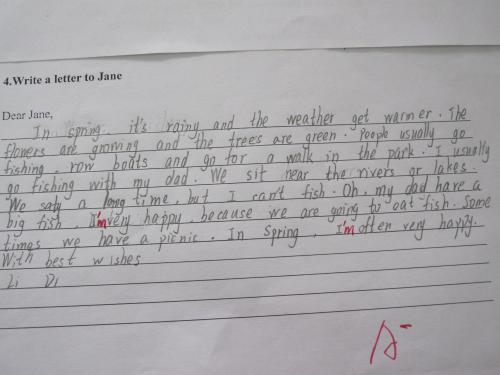 4.Write a letter to Jane
Dear Jane,
In spring, it's rainy and the weather get warmer. The
flowers are growing and the trees are green. People usually go
fishing, row boats and go for a walk in the park. I usually
go fishing with my dad. We sit near the rivers or lakes.
We say a long time, but I can't fish. Oh, my dad have a
big fish. I'm very happy, because we are going to eat fish. Some
times we have a picnic. In Spring, I'm often very happy.
With best wishes
Li Di
A-